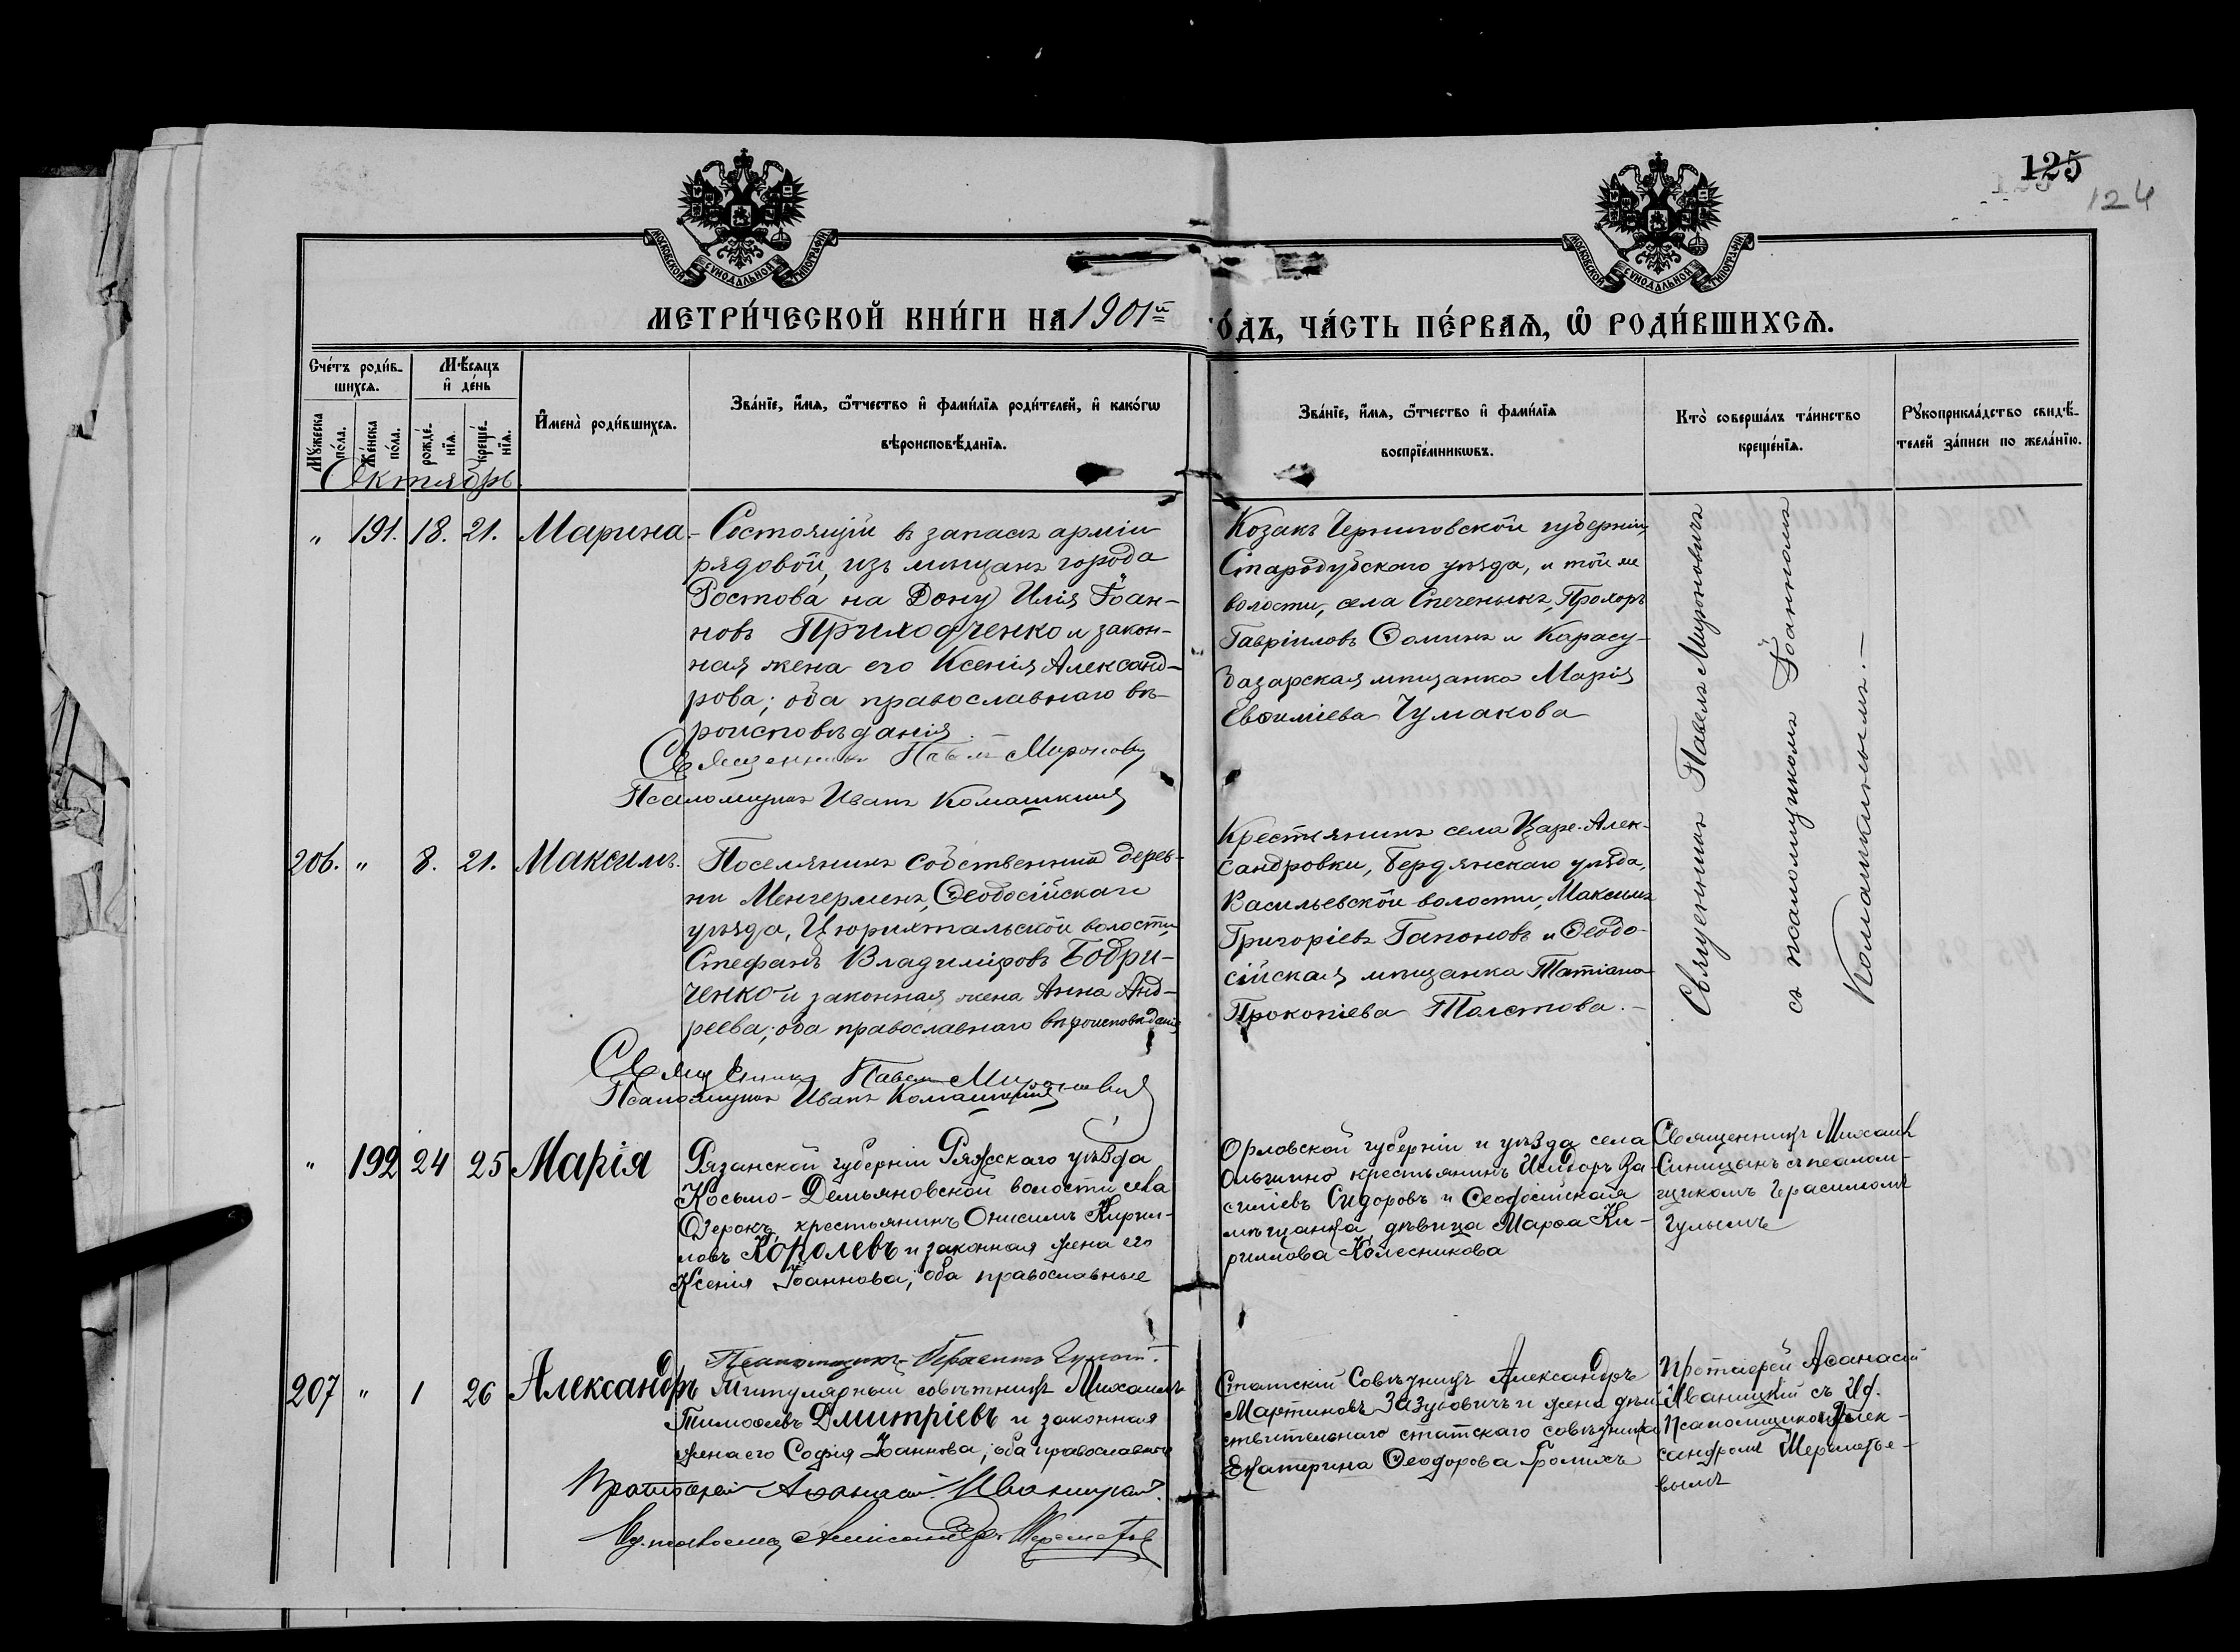 125
124
МОСКОВСКОЙ СѴНОДАЛЬНОЙ ТИПОГРАФІИ
МОСКОВСКОЙ СѴНОДАЛЬНОЙ ТИПОГРАФІИ
МЕТРИ́ЧЕСКОЙ КНИ́ГИ НА 1901й
О́ДЪ, ЧА́СТЬ ПЕ́РВАѦ, Ѽ РОДИ́ВШИХСѦ.
Сче́тъ роди́в-
шихсѧ.
Мѣ́сѧцъ
и҆ де́нь
Мꙋ́жеска
по́ла.
Же́нска
по́ла.
рожде́-
нїѧ.
креще́-
нїѧ.
И҆мена̀ роди́вшихсѧ.
Зва́нїе, и҆́мѧ, ѻ҆́тчество и҆ фами́лїѧ роди́телей, и҆ како́гѡ
вѣроисповѣ́данїѧ.
Зва́нїе, и҆́мѧ, ѻ҆́тчество и҆ фами́лїѧ
воспрїе́мникѡвъ.
Кто̀ соверша́лъ та́инство
креще́нїѧ.
Рꙋкоприкла́дство свидѣ́-
телей за́писи по жела́нїю.
Октябрь
„ 191. 18. 21. Марина.
Состоящій въ запасѣ арміи
рядовой, изъ мѣщанъ города
Ростова на Дону Илія Іоан-
новъ Приходченко и закон-
ная жена его Ксенія Александ-
рова; оба православнаго вѣ-
роисповѣданія.
Священникъ Павелъ Мироновичъ
Псаломщикъ Иванъ Комашкинъ
Козакъ Черниговской губерніи,
Стародубскаго уѣзда, и той же
волости, села Прохоръ
Гавріиловъ Ѳоминъ и Карасу-
базарская мѣщанка Марія
Евѳиміева Чумакова
Священникъ Павелъ Мироновичъ
съ псаломщикомъ Іоанномъ
Комашкинымъ.—
206. „ 8. 21. Максимъ.
Поселянинъ собственникъ дерев-
ни Менгерменъ, Ѳеодосійскаго
уѣзда, Цюрихтальской волости,
Стефанъ Владиміровъ Бобри-
ченко и законная жена Анна Анд-
реева; оба православнаго вѣроисповѣданія
Священникъ Павелъ Мироновичъ
Псаломщикъ Иванъ Комашкинъ
Крестьянинъ села Царе-Алек-
сандровки, Бердянскаго уѣзда,
Васильевской волости, Максимъ
Григоріевъ Гапоновъ и Ѳеодо-
сійская мѣщанка Татіана
Прокопіева Толстова.—
„ 192 24 25 Марія
Рязанской губерніи Ряжскаго уѣзда
Косьмо-Демьяновской волости села
крестьянинъ Онисимъ Кирил-
ловъ Королевъ и законная жена его
Ксенія Іоаннова; оба православные
Псаломщикъ
Орловской губерніи и уѣзда села
Ольгино крестьянинъ Исидоръ Ва-
силіевъ Сидоровъ и Ѳеодосійская
мѣщанка дѣвица Марѳа Ки-
риллова Колесникова
Священникъ Михаилъ
Синицынъ съ псалом-
щикомъ Герасимомъ
207 „ 1 26 Александръ
Титулярный совѣтникъ Михаилъ
Тимоѳеевъ Дмитріевъ и законная
жена его Софія Іоаннова; оба православные
Протоіерей Аѳанасій Иваницкій
Александръ Шереметьевъ
Статскій Совѣтникъ Александръ
Мартиновъ Зазубовичъ и жена дѣй-
ствительнаго статскаго совѣтника
Екатерина Ѳеодорова
Протоіерей Аѳанасій
Иваницкій съ Ид.
Псаломщика Алек-
сандромъ Шереметье-
вымъ